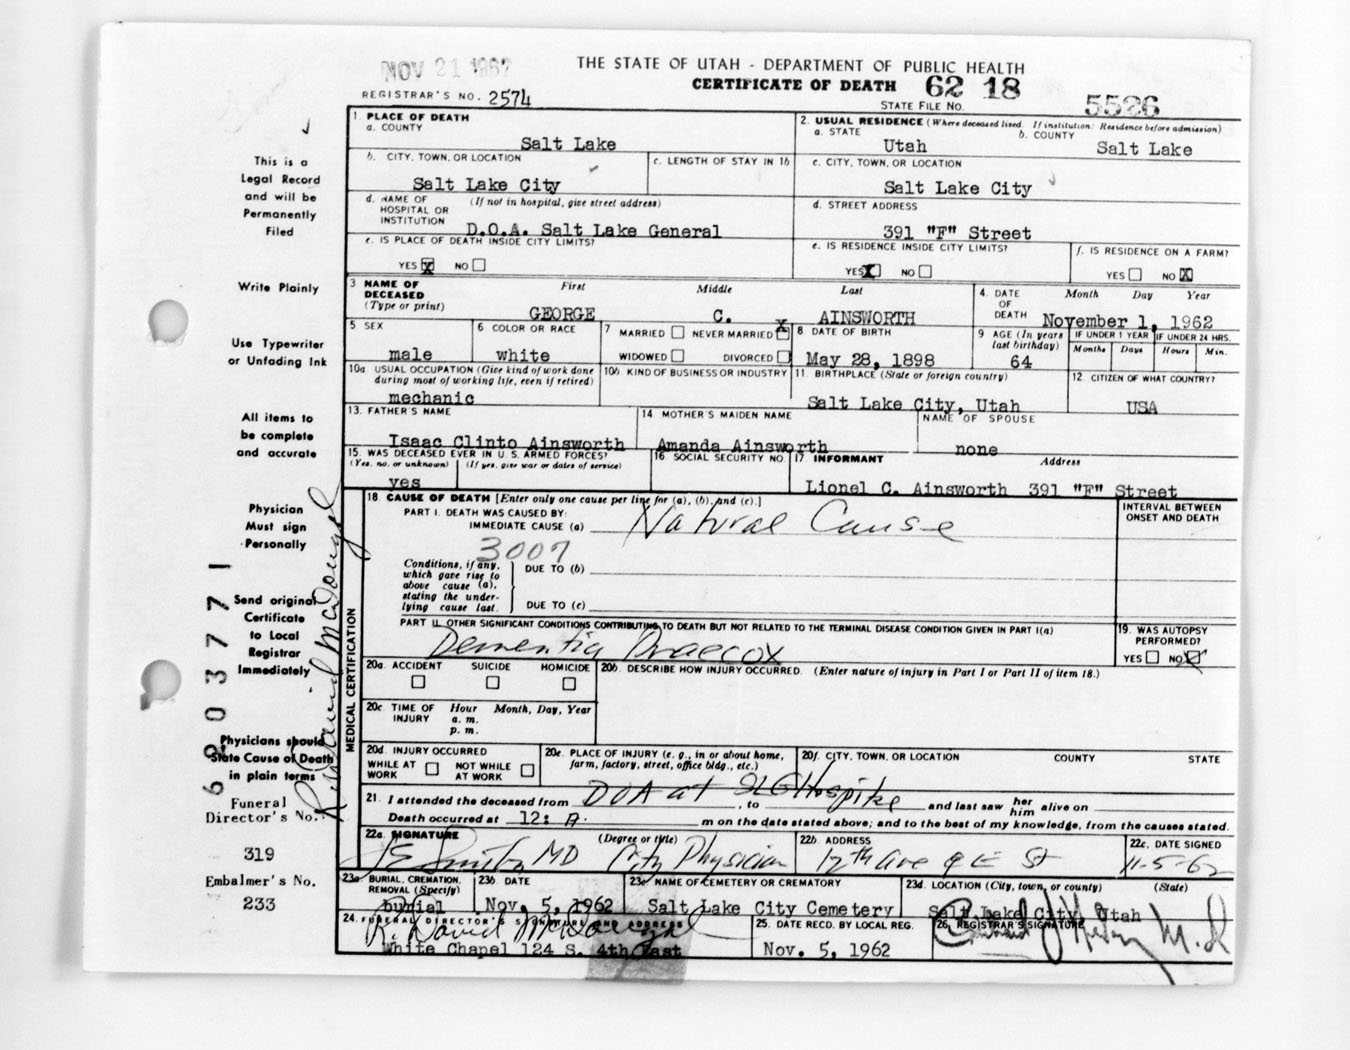 NOV 21 1962
THE STATE OF UTAH - DEPARTMENT OF PUBLIC HEALTH
CERTIFICATE OF DEATH 62 18
REGISTRAR'S NO. 2574
STATE FILE NO. 5526
This is a
Legal Record
and will be
Permanently
Filed
Write Plainly
Use Typewriter
or Unfading Ink
All items to
be complete
and accurate
Physician
Must sign
Personally
Send original
Certificate
to Local
Registrar
Immediately
Physicians should
State Cause of Death
in plain terms
Funeral
Director's No.
319
Embalmer's No.
233
620377 1
R. David McDougal
1. PLACE OF DEATH
a. COUNTY
Salt Lake
2. USUAL RESIDENCE (Where deceased lived. If institution: Residence before admission)
a. STATE
Utah
b. COUNTY
Salt Lake
b. CITY, TOWN, OR LOCATION
Salt Lake City
c. LENGTH OF STAY IN 1b
c. CITY, TOWN, OR LOCATION
Salt Lake City
d. NAME OF HOSPITAL OR INSTITUTION
(If not in hospital, give street address)
D.O.A. Salt Lake General
d. STREET ADDRESS
391 "F" Street
e. IS PLACE OF DEATH INSIDE CITY LIMITS?
YES X NO
e. IS RESIDENCE INSIDE CITY LIMITS?
YES X NO
f. IS RESIDENCE ON A FARM?
YES NO X
3. NAME OF DECEASED
(Type or print)
First Middle Last
GEORGE C. AINSWORTH
4. DATE OF DEATH
Month Day Year
November 1, 1962
5 SEX
male
6 COLOR OR RACE
white
7 MARRIED NEVER MARRIED X
WIDOWED DIVORCED
8. DATE OF BIRTH
May 28, 1898
9 AGE (In years last birthday)
64
IF UNDER 1 YEAR IF UNDER 24 HRS.
Months Days Hours Min.
10a. USUAL OCCUPATION (Give kind of work done during most of working life, even if retired)
mechanic
10b. KIND OF BUSINESS OR INDUSTRY
11. BIRTHPLACE (State or foreign country)
Salt Lake City, Utah
12. CITIZEN OF WHAT COUNTRY?
USA
13. FATHER'S NAME
Isaac Clinto Ainsworth
14. MOTHER'S MAIDEN NAME
Amanda Ainsworth
NAME OF SPOUSE
none
15. WAS DECEASED EVER IN U.S. ARMED FORCES?
(Yes, no, or unknown) (If yes, give war or dates of service)
yes
16. SOCIAL SECURITY NO.
17. INFORMANT Address
Lionel C. Ainsworth 391 "F" Street
MEDICAL CERTIFICATION
18. CAUSE OF DEATH [Enter only one cause per line for (a), (b), and (c).]
INTERVAL BETWEEN ONSET AND DEATH
PART I. DEATH WAS CAUSED BY:
IMMEDIATE CAUSE (a) Natural Cause
3007
Conditions, if any, which gave rise to above cause (a), stating the underlying cause last.
DUE TO (b)
DUE TO (c)
PART II. OTHER SIGNIFICANT CONDITIONS CONTRIBUTING TO DEATH BUT NOT RELATED TO THE TERMINAL DISEASE CONDITION GIVEN IN PART I(a)
Dementia Praecox
19. WAS AUTOPSY PERFORMED?
YES NO X
20a. ACCIDENT SUICIDE HOMICIDE
20b. DESCRIBE HOW INJURY OCCURRED. (Enter nature of injury in Part I or Part II of item 18.)
20c. TIME OF INJURY
Hour Month, Day, Year
a. m.
p. m.
20d. INJURY OCCURRED
WHILE AT WORK NOT WHILE AT WORK
20e. PLACE OF INJURY (e. g., in or about home, farm, factory, street, office bldg., etc.)
20f. CITY, TOWN, OR LOCATION COUNTY STATE
21. I attended the deceased from DOA at SLG Hospital, to and last saw her him alive on
Death occurred at 12: A. m on the date stated above; and to the best of my knowledge, from the causes stated.
22a. SIGNATURE (Degree or title)
J E Smith MD City Physician
22b. ADDRESS
12th Ave & E St
22c. DATE SIGNED
11-5-62
23a. BURIAL, CREMATION, REMOVAL (Specify)
burial
23b. DATE
Nov. 5, 1962
23c. NAME OF CEMETERY OR CREMATORY
Salt Lake City Cemetery
23d. LOCATION (City, town, or county) (State)
Salt Lake City, Utah
24. FUNERAL DIRECTOR'S SIGNATURE AND ADDRESS
R. David McDougal
White Chapel 124 S. 4th East
25. DATE RECD. BY LOCAL REG.
Nov. 5, 1962
26. REGISTRAR'S SIGNATURE